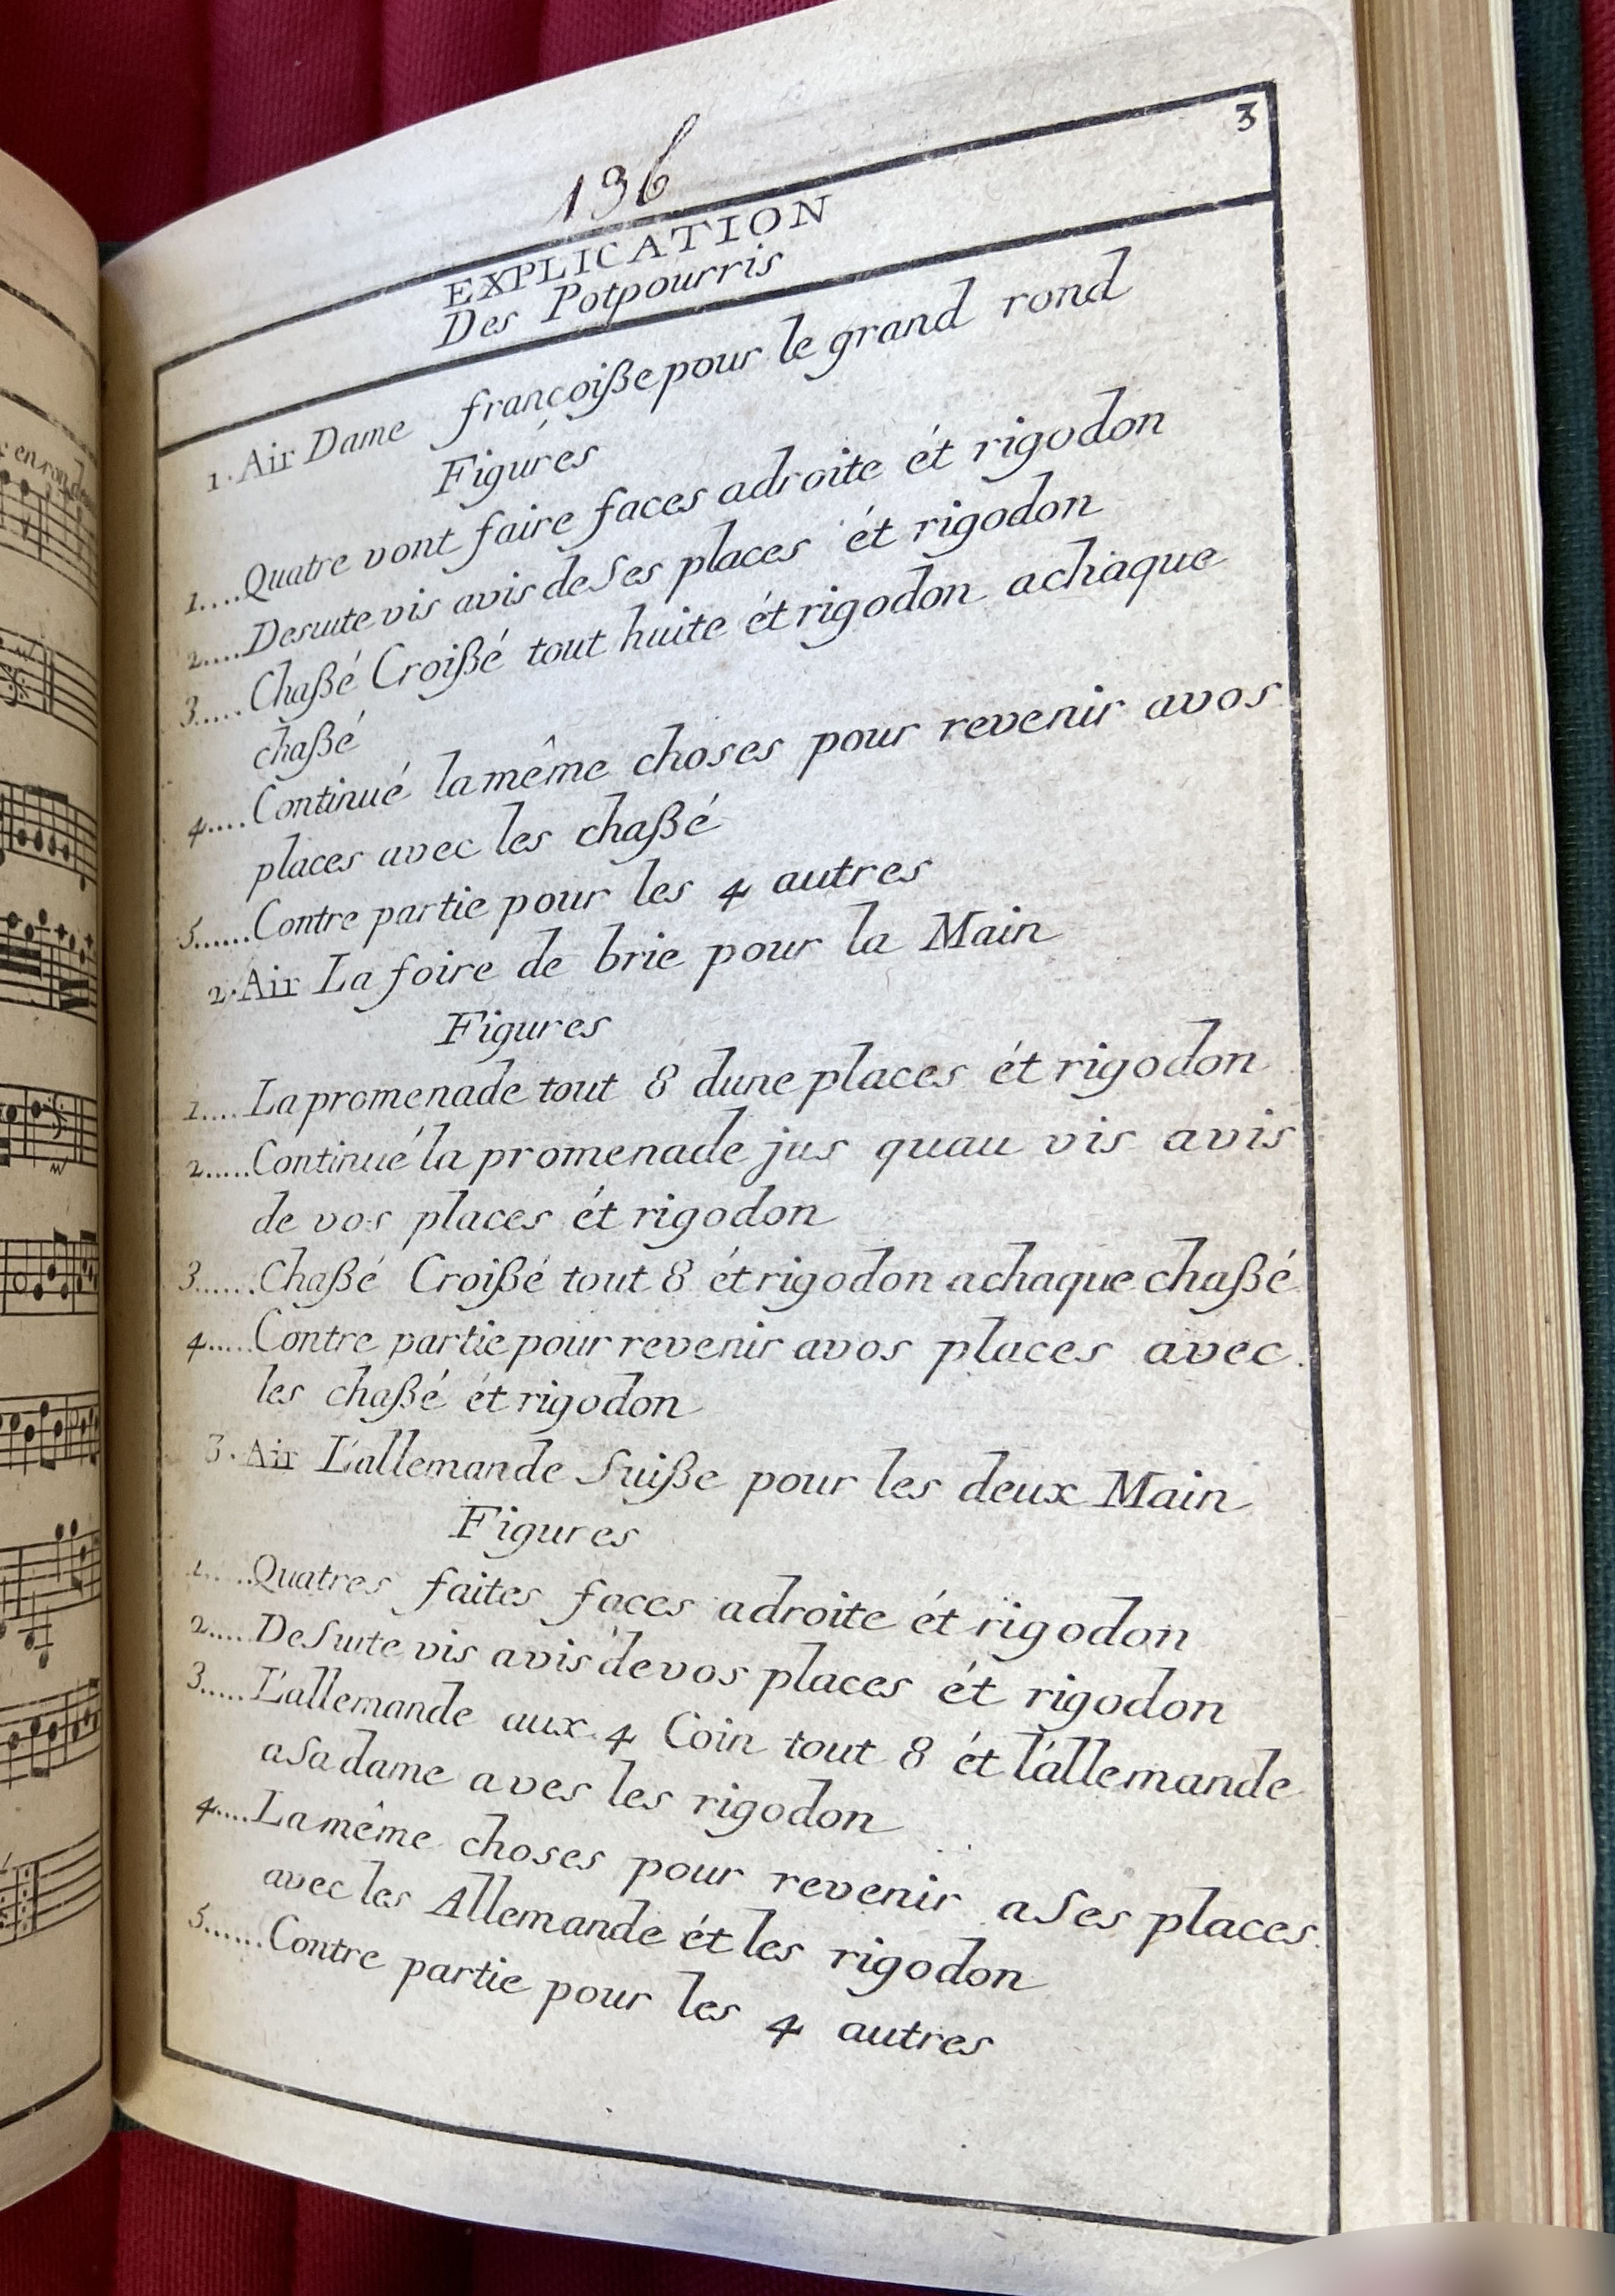 3
136
EXPLICATION
Des Potpourris
1. Air Dame françoiße pour le grand rond
Figures
1....Quatre vont faire faces adroite ét rigodon
2....Desuite vis avis de Ses places ét rigodon
3.....Chaßé Croißé tout huite ét rigodon achaque
chaßé
4....Continué la même choses pour revenir avos
places avec les chaßé
5......Contre partie pour les 4 autres
2. Air La foire de brie pour la Main
Figures
1....La promenade tout 8 dune places ét rigodon
2.....Continué la promenade jus quau vis avis
de vos places ét rigodon
3......Chaßé Croißé tout 8 ét rigodon achaque chaßé
4.....Contre partie pour revenir avos places avec
les chaßé ét rigodon
3. Air L'allemande Suiße pour les deux Main
Figures
1.....Quatres faites faces adroite ét rigodon
2.....DeSuite vis avis de vos places ét rigodon
3.....L'allemande aux 4 Coin tout 8 ét l'allemande
aSa dame aves les rigodon
4....La même choses pour revenir aSes places
avec les Allemande ét les rigodon
5......Contre partie pour les 4 autres